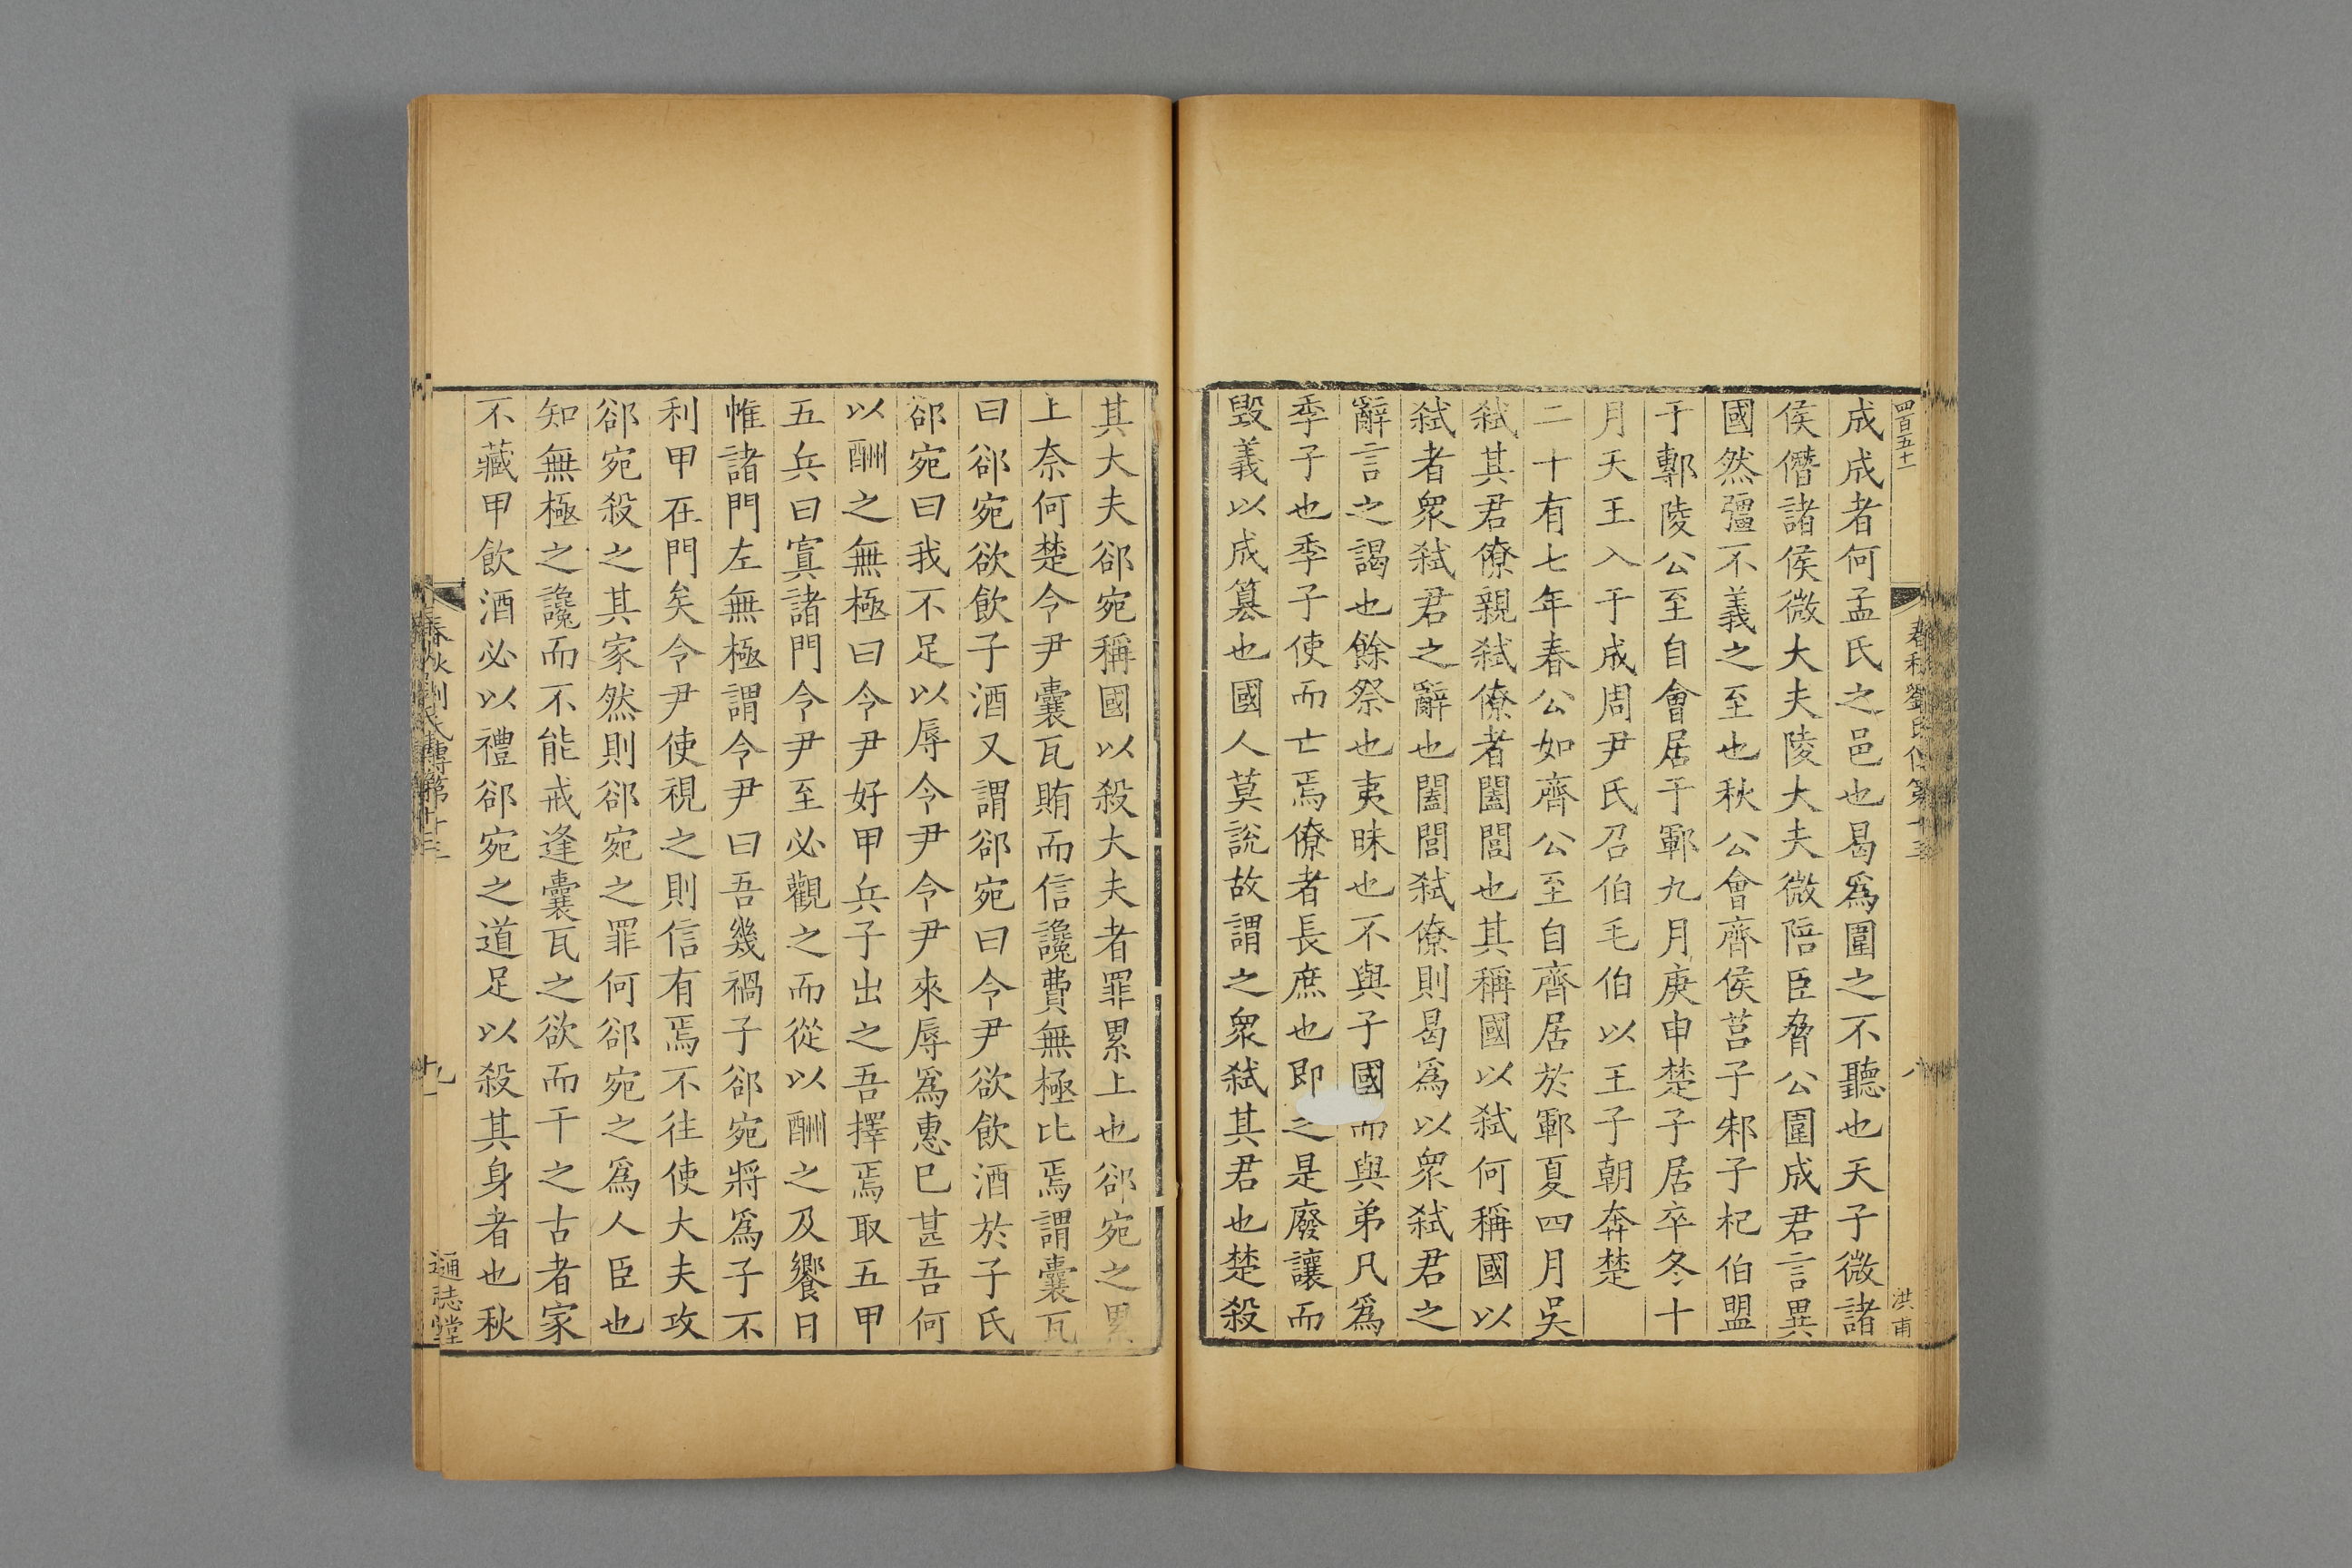 四百五十一
春秋劉氏傳第十三
八
洪甫
成成者何孟氏之邑也曷爲圍之不聽也天子微諸
侯僭諸侯微大夫陵大夫微陪臣脅公圍成君言異
國然彊不義之至也秋公會齊侯莒子邾子杞伯盟
于鄟陵公至自會居于鄆九月庚申楚子居卒冬十
月天王入于成周尹氏召伯毛伯以王子朝奔楚
二十有七年春公如齊公至自齊居於鄆夏四月吳
弒其君僚親弒僚者闔閭也其稱國以弒何稱國以
弒者衆弒君之辭也闔閭弒僚則曷爲以衆弒君之
辭言之謁也餘祭也夷昧也不與子國而與弟凡爲
季子也季子使而亡焉僚者長庶也即之是廢讓而
毀義以成篡也國人莫說故謂之衆弒其君也楚殺
其大夫郤宛稱國以殺大夫者罪累上也郤宛之累
上奈何楚令尹囊瓦賄而信讒費無極比焉謂囊瓦
曰郤宛欲飲子酒又謂郤宛曰令尹欲飲酒於子氏
郤宛曰我不足以辱令尹令尹來辱爲惠已甚吾何
以酬之無極曰令尹好甲兵子出之吾擇焉取五甲
五兵曰寘諸門令尹至必觀之而從以酬之及饗日
帷諸門左無極謂令尹曰吾幾禍子郤宛將爲子不
利甲在門矣令尹使視之則信有焉不往使大夫攻
郤宛殺之其家然則郤宛之罪何郤宛之爲人臣也
知無極之讒而不能戒逢囊瓦之欲而干之古者家
不藏甲飲酒必以禮郤宛之道足以殺其身者也秋
春秋劉氏傳第十三
九
通志堂